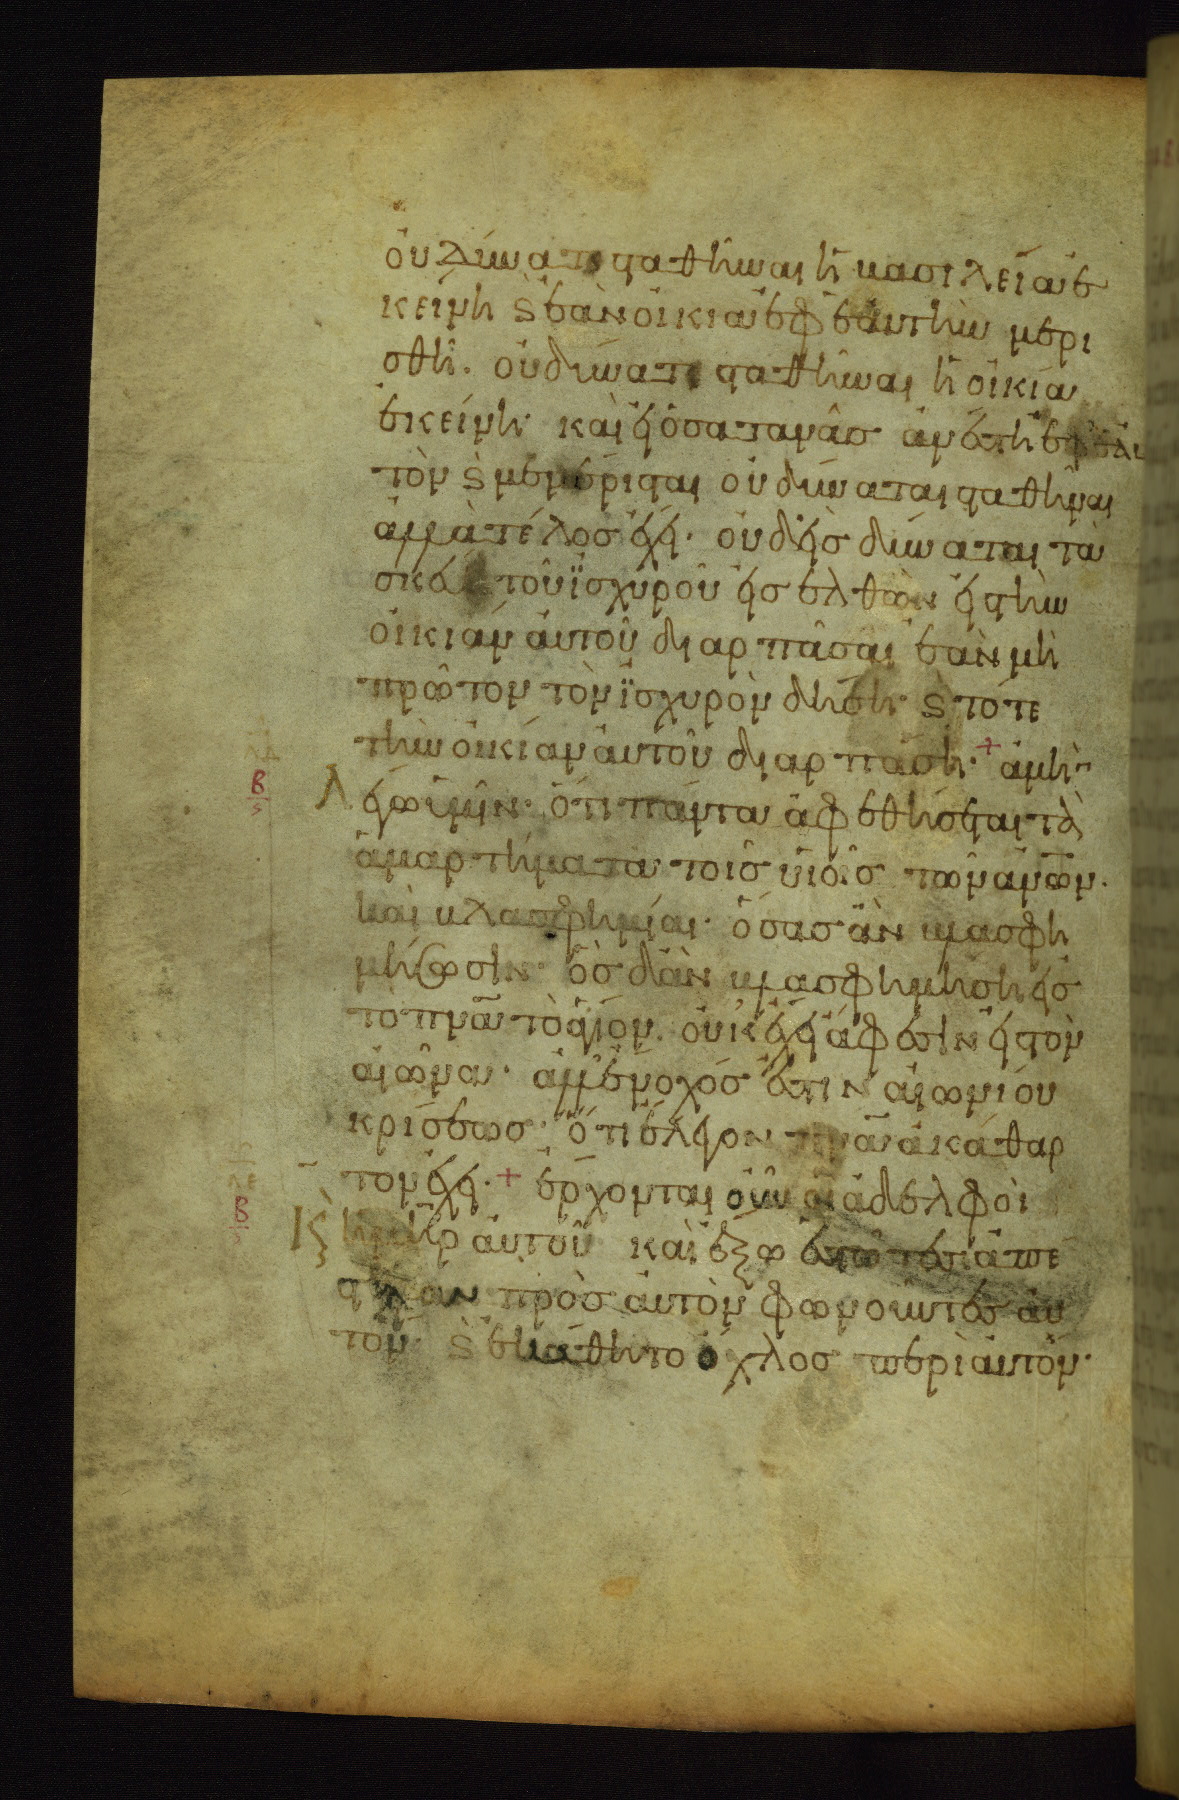 οὐ δύναται σταθῆναι ἡ βασιλεία ἐ
κείνη καὶ ἐὰν οἰκία ἐφ ἑαυτὴν μερι
σθῆ. οὐ δύναται σταθῆναι ἡ οἰκία
ἐκείνη. καὶ εἰ ὁ σατανᾶς ἀνέστη ἐφ ἑαυ
τὸν καὶ μεμέρισται οὐ δύναται σταθῆναι
ἀλλὰ τέλος ἔχει. οὐδεὶς δύναται τὰ
σκεύη τοῦ ἰσχυροῦ εἰσελθὼν εἰς τὴν
οἰκίαν αὐτοῦ διαρπᾶσαι ἐὰν μὴ
πρῶτον τὸν ἰσχυρὸν δήση. καὶ τότε
τὴν οἰκίαν αὐτοῦ διαρπάση. + ἀμὴν
λέγω ὑμῖν. ὅτι πάντα ἀφεθήσεται τὰ
ἁμαρτήματα τοῖς υἱοῖς τῶν ἀνων.
καὶ βλασφημίαι. ὅσας ἂν βλασφη
μήσωσιν. ὃς δ' ἂν βλασφημήση εἰς
τὸ πνα τὸ ἅγιον. οὐκ ἔχει ἄφεσιν εἰς τὸν
αἰῶνα. ἀλλ' ἔνοχός ἐστιν αἰωνίου
κρίσεως. ὅτι ἔλεγον πνα ἀκάθαρ
τον ἔχει. + ἔρχονται οὖν οἱ ἀδελφοὶ
καὶ ἡ μηρ αὐτοῦ καὶ ἔξω ἑστῶτες ἀπέ
στειλαν πρὸς αὐτὸν φωνοῦντες αὐ
τόν. καὶ ἐκάθητο ὄχλος περὶ αὐτόν.